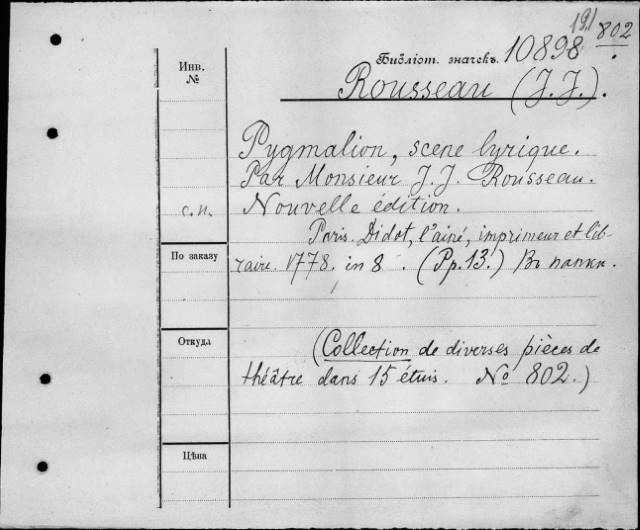 191 802
Библіот. значекъ. 10898.
Инв.
№
Rousseau (J. J.).
Pygmalion, scene lyrique.
Par Monsieur J. J. Rousseau.
с.п. Nouvelle édition.
Paris. Didot, l'ainé, imprimeur et lib-
По заказу
raire. 1778. in 8. (Pp. 13.) Въ папки.
Откуда
(Collection de diverses pièces de
théâtre dans 15 étuis. No 802.)
Цѣна